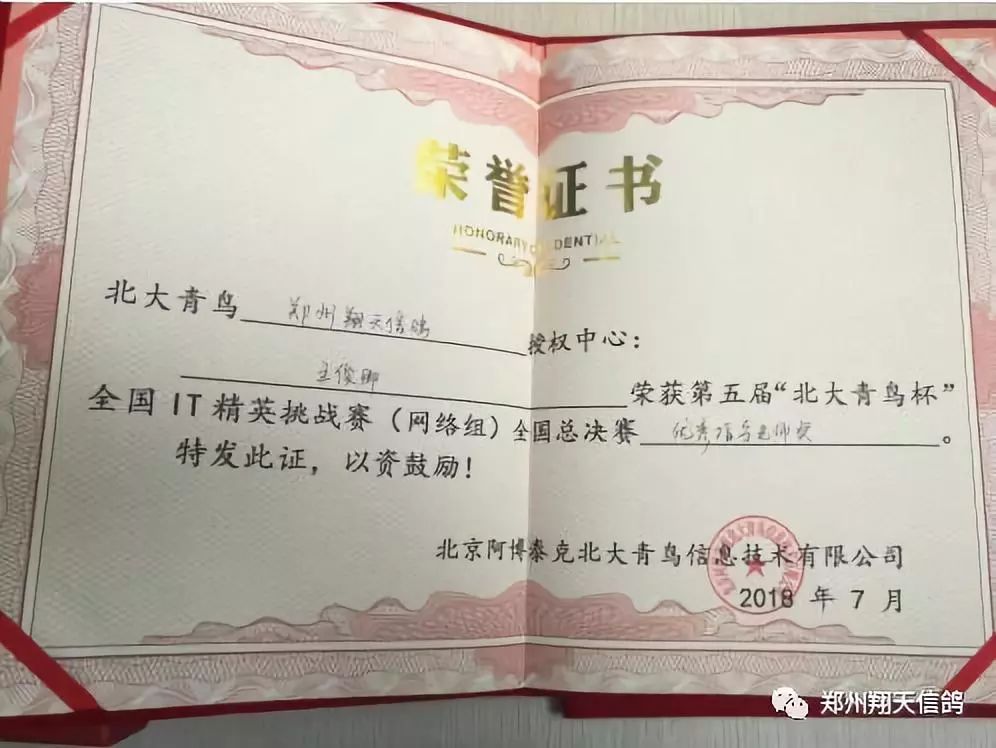 荣誉证书
HONORARY CREDENTIAL
北大青鸟 郑州翔天信鸽 授权中心：
王俊卿 荣获第五届“北大青鸟杯”
全国IT精英挑战赛（网络组）全国总决赛 优秀指导老师奖。
特发此证，以资鼓励！
北京阿博泰克北大青鸟信息技术有限公司
2018 年 7 月
郑州翔天信鸽